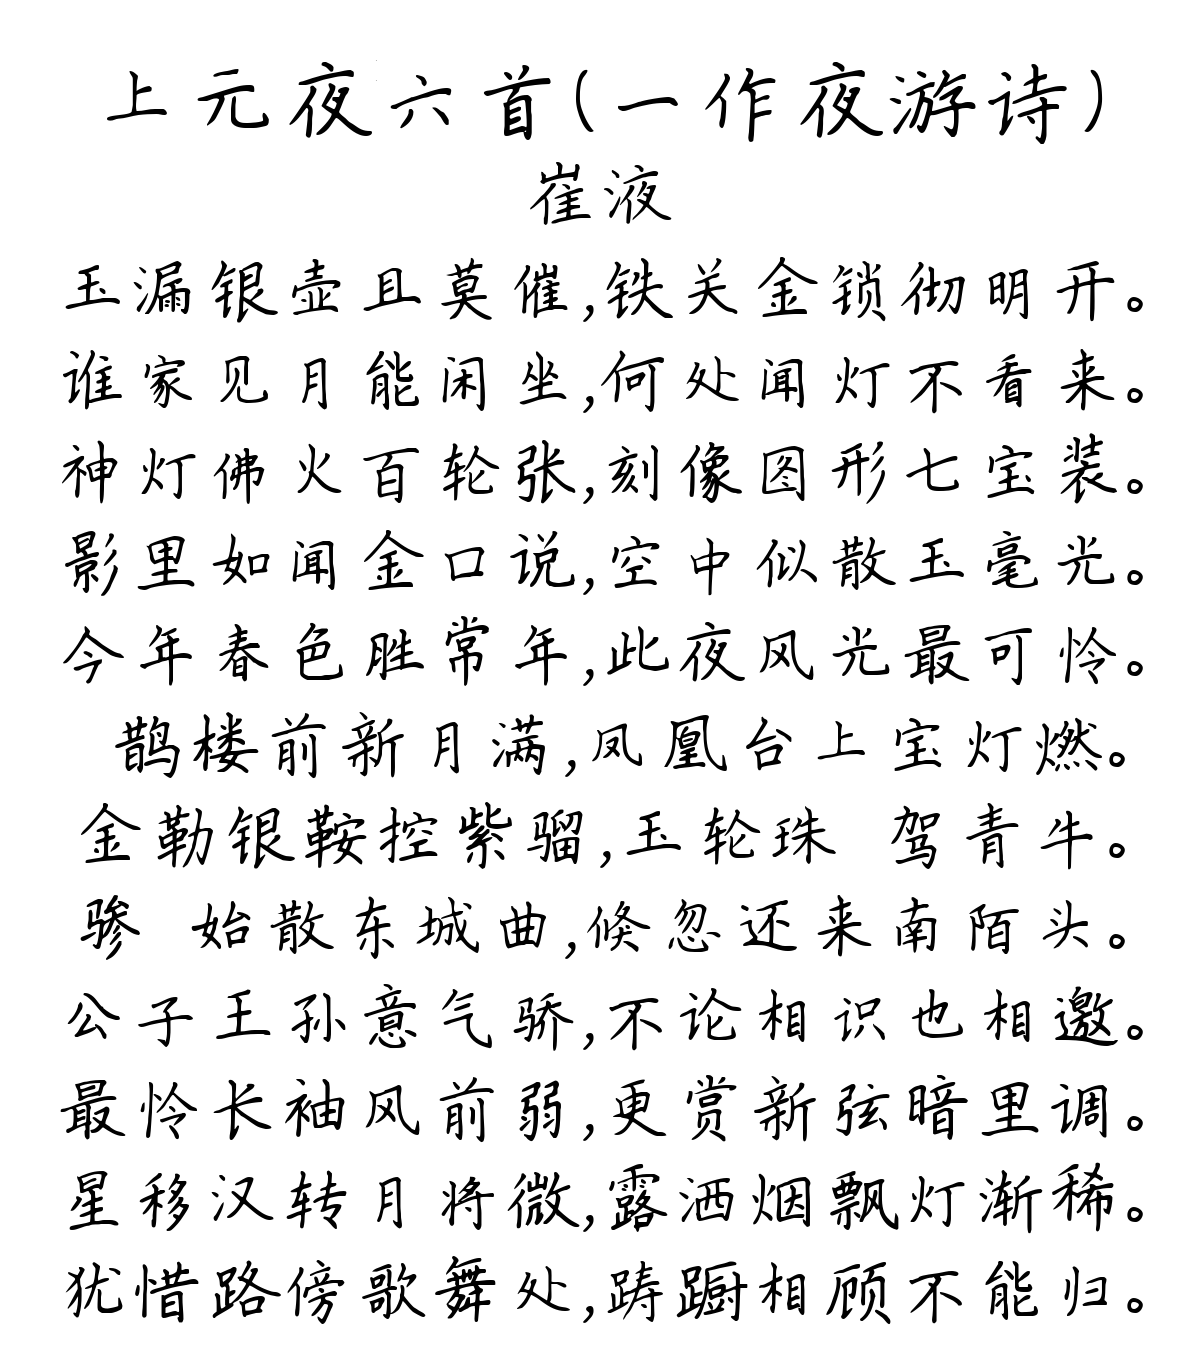 上元夜六首(一作夜游诗)
崔液
玉漏银壶且莫催,铁关金锁彻明开。
谁家见月能闲坐,何处闻灯不看来。
神灯佛火百轮张,刻像图形七宝装。
影里如闻金口说,空中似散玉毫光。
今年春色胜常年,此夜风光最可怜。
鹊楼前新月满,凤凰台上宝灯燃。
金勒银鞍控紫骝,玉轮珠 驾青牛。
骖 始散东城曲,倏忽还来南陌头。
公子王孙意气骄,不论相识也相邀。
最怜长袖风前弱,更赏新弦暗里调。
星移汉转月将微,露洒烟飘灯渐稀。
犹惜路傍歌舞处,踌蹰相顾不能归。